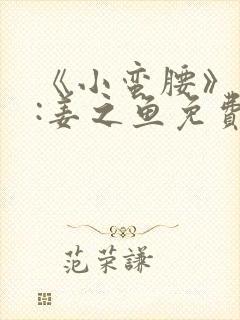 《小蛮腰》
:姜之鱼免费
范荣謙